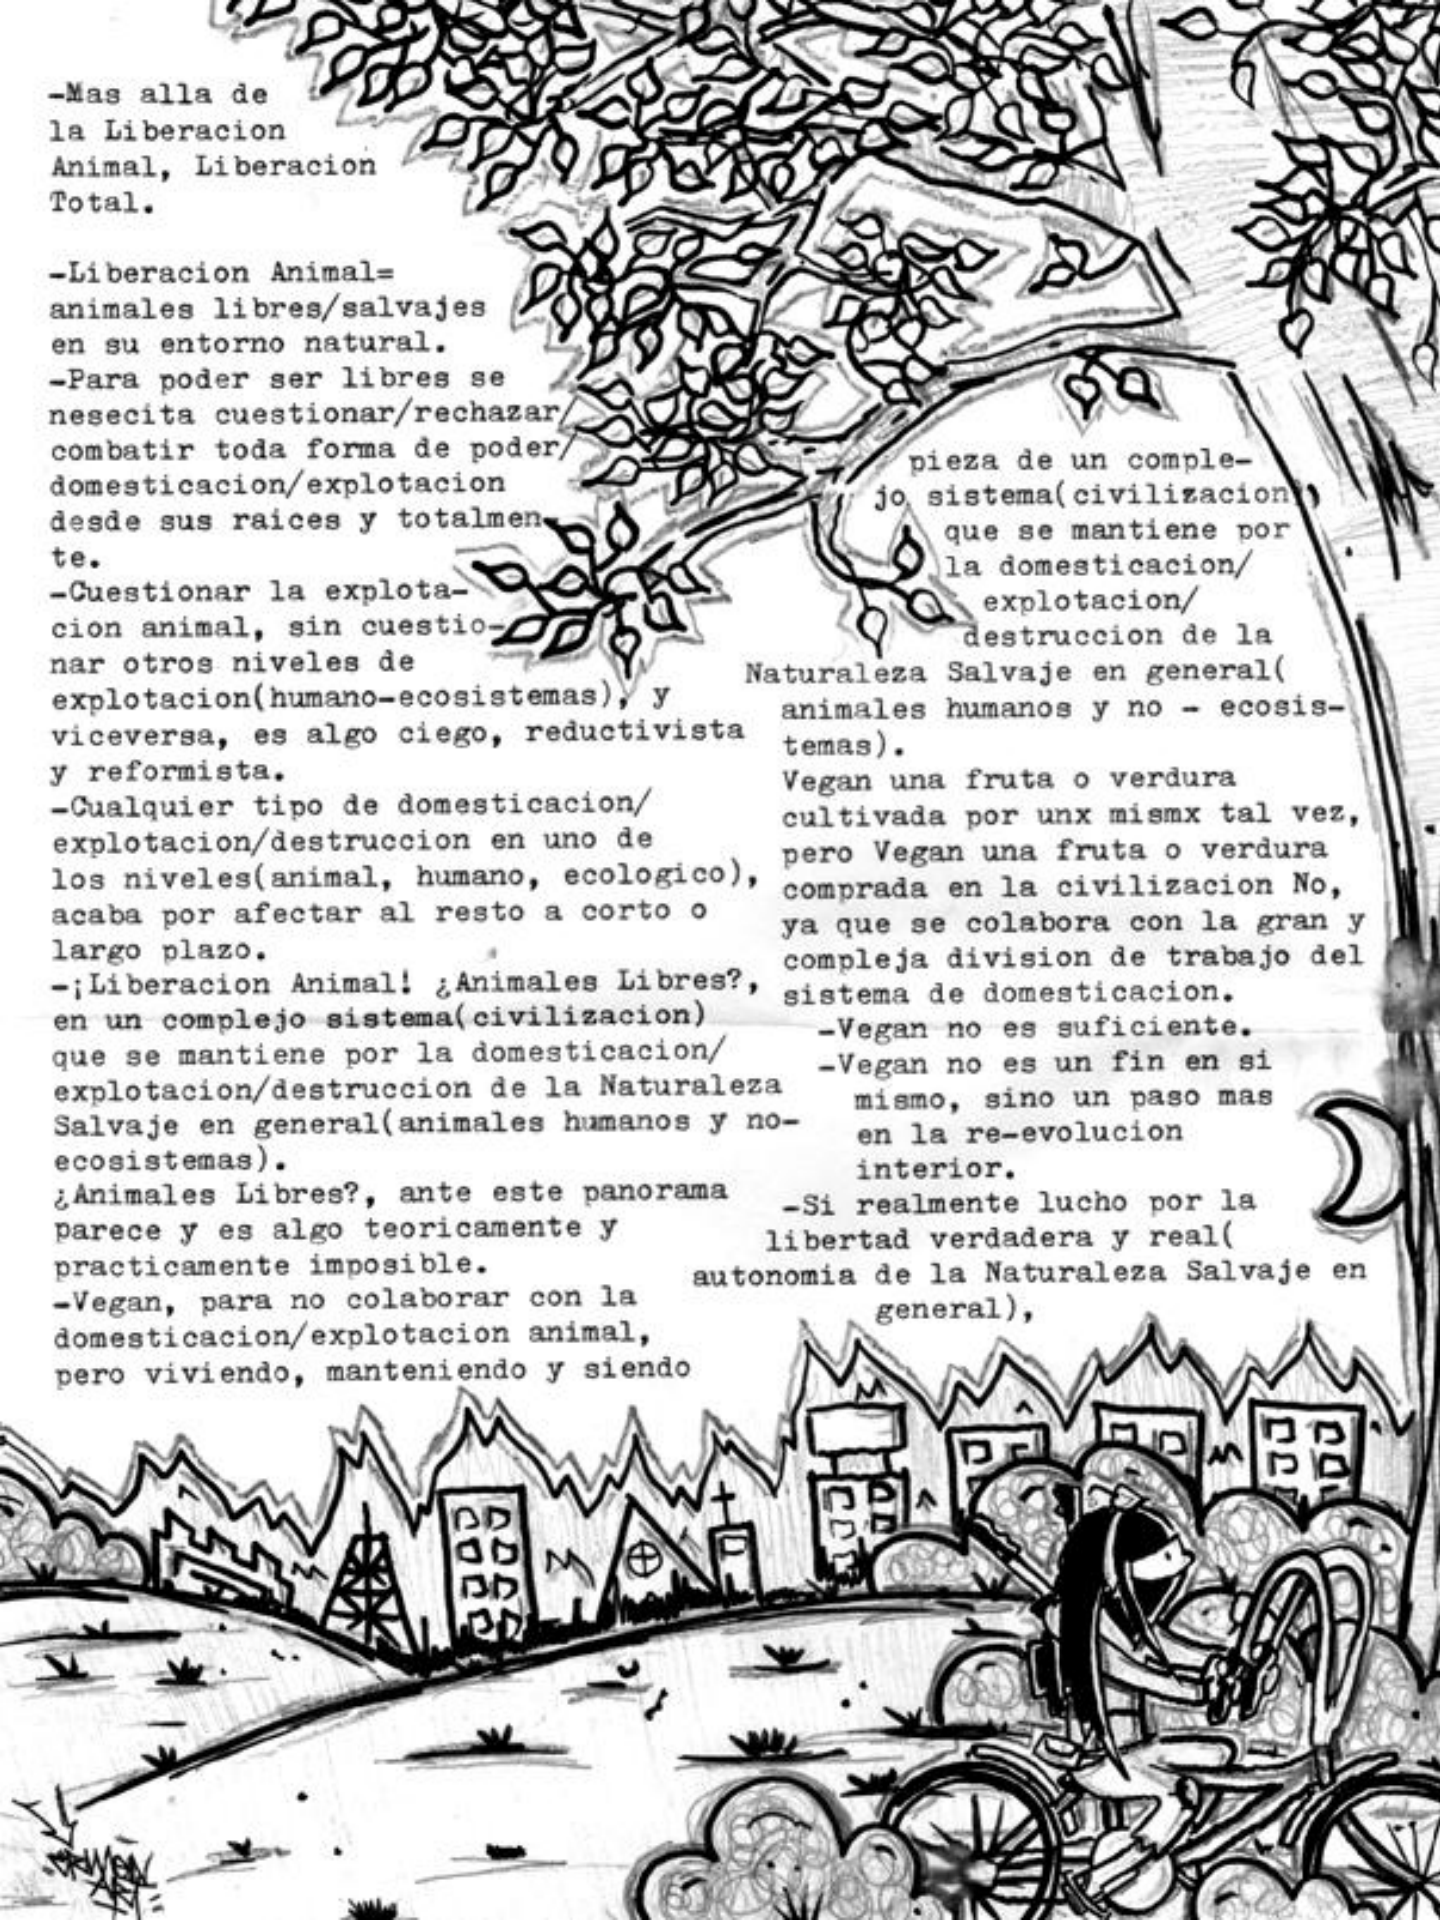 -Mas alla de
la Liberacion
Animal, Liberacion
Total.
-Liberacion Animal=
animales libres/salvajes
en su entorno natural.
-Para poder ser libres se
nesecita cuestionar/rechazar/
combatir toda forma de poder/
domesticacion/explotacion
desde sus raices y totalmen-
te.
-Cuestionar la explota-
cion animal, sin cuestio-
nar otros niveles de
explotacion(humano-ecosistemas), y
viceversa, es algo ciego, reductivista
y reformista.
-Cualquier tipo de domesticacion/
explotacion/destruccion en uno de
los niveles(animal, humano, ecologico),
acaba por afectar al resto a corto o
largo plazo.
-¡Liberacion Animal! ¿Animales Libres?,
en un complejo sistema(civilizacion)
que se mantiene por la domesticacion/
explotacion/destruccion de la Naturaleza
Salvaje en general(animales humanos y no-
ecosistemas).
¿Animales Libres?, ante este panorama
parece y es algo teoricamente y
practicamente imposible.
-Vegan, para no colaborar con la
domesticacion/explotacion animal,
pero viviendo, manteniendo y siendo
pieza de un comple-
jo sistema(civilizacion)
que se mantiene por
la domesticacion/
explotacion/
destruccion de la
Naturaleza Salvaje en general(
animales humanos y no - ecosis-
temas).
Vegan una fruta o verdura
cultivada por unx mismx tal vez,
pero Vegan una fruta o verdura
comprada en la civilizacion No,
ya que se colabora con la gran y
compleja division de trabajo del
sistema de domesticacion.
-Vegan no es suficiente.
-Vegan no es un fin en si
mismo, sino un paso mas
en la re-evolucion
interior.
-Si realmente lucho por la
libertad verdadera y real(
autonomia de la Naturaleza Salvaje en
general),